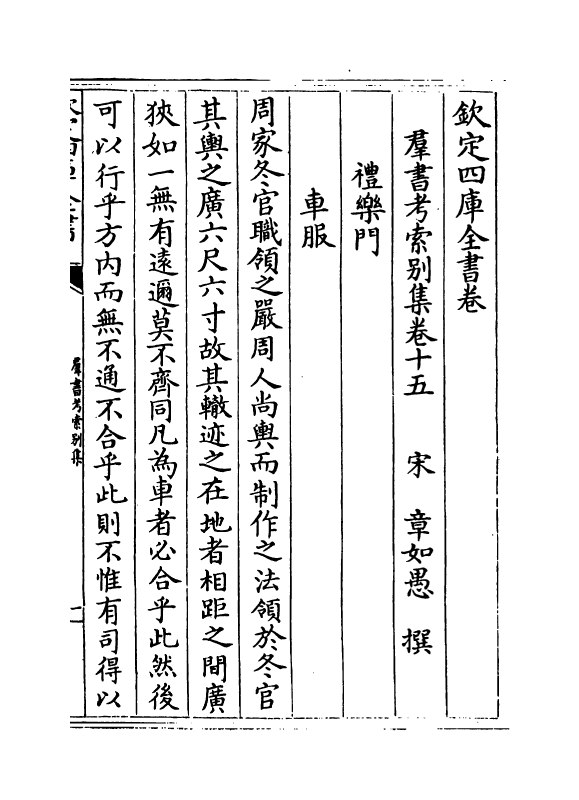 欽定四庫全書卷
羣書考索别集卷十五　宋　章如愚　撰
禮樂門
車服
周家冬官職領之嚴周人尚輿而制作之法領於冬官
其輿之廣六尺六寸故其轍迹之在地者相距之間廣
狹如一無有遠邇莫不齊同凡為車者必合乎此然後
可以行乎方内而無不通不合乎此則不惟有司得以
羣書考索别集